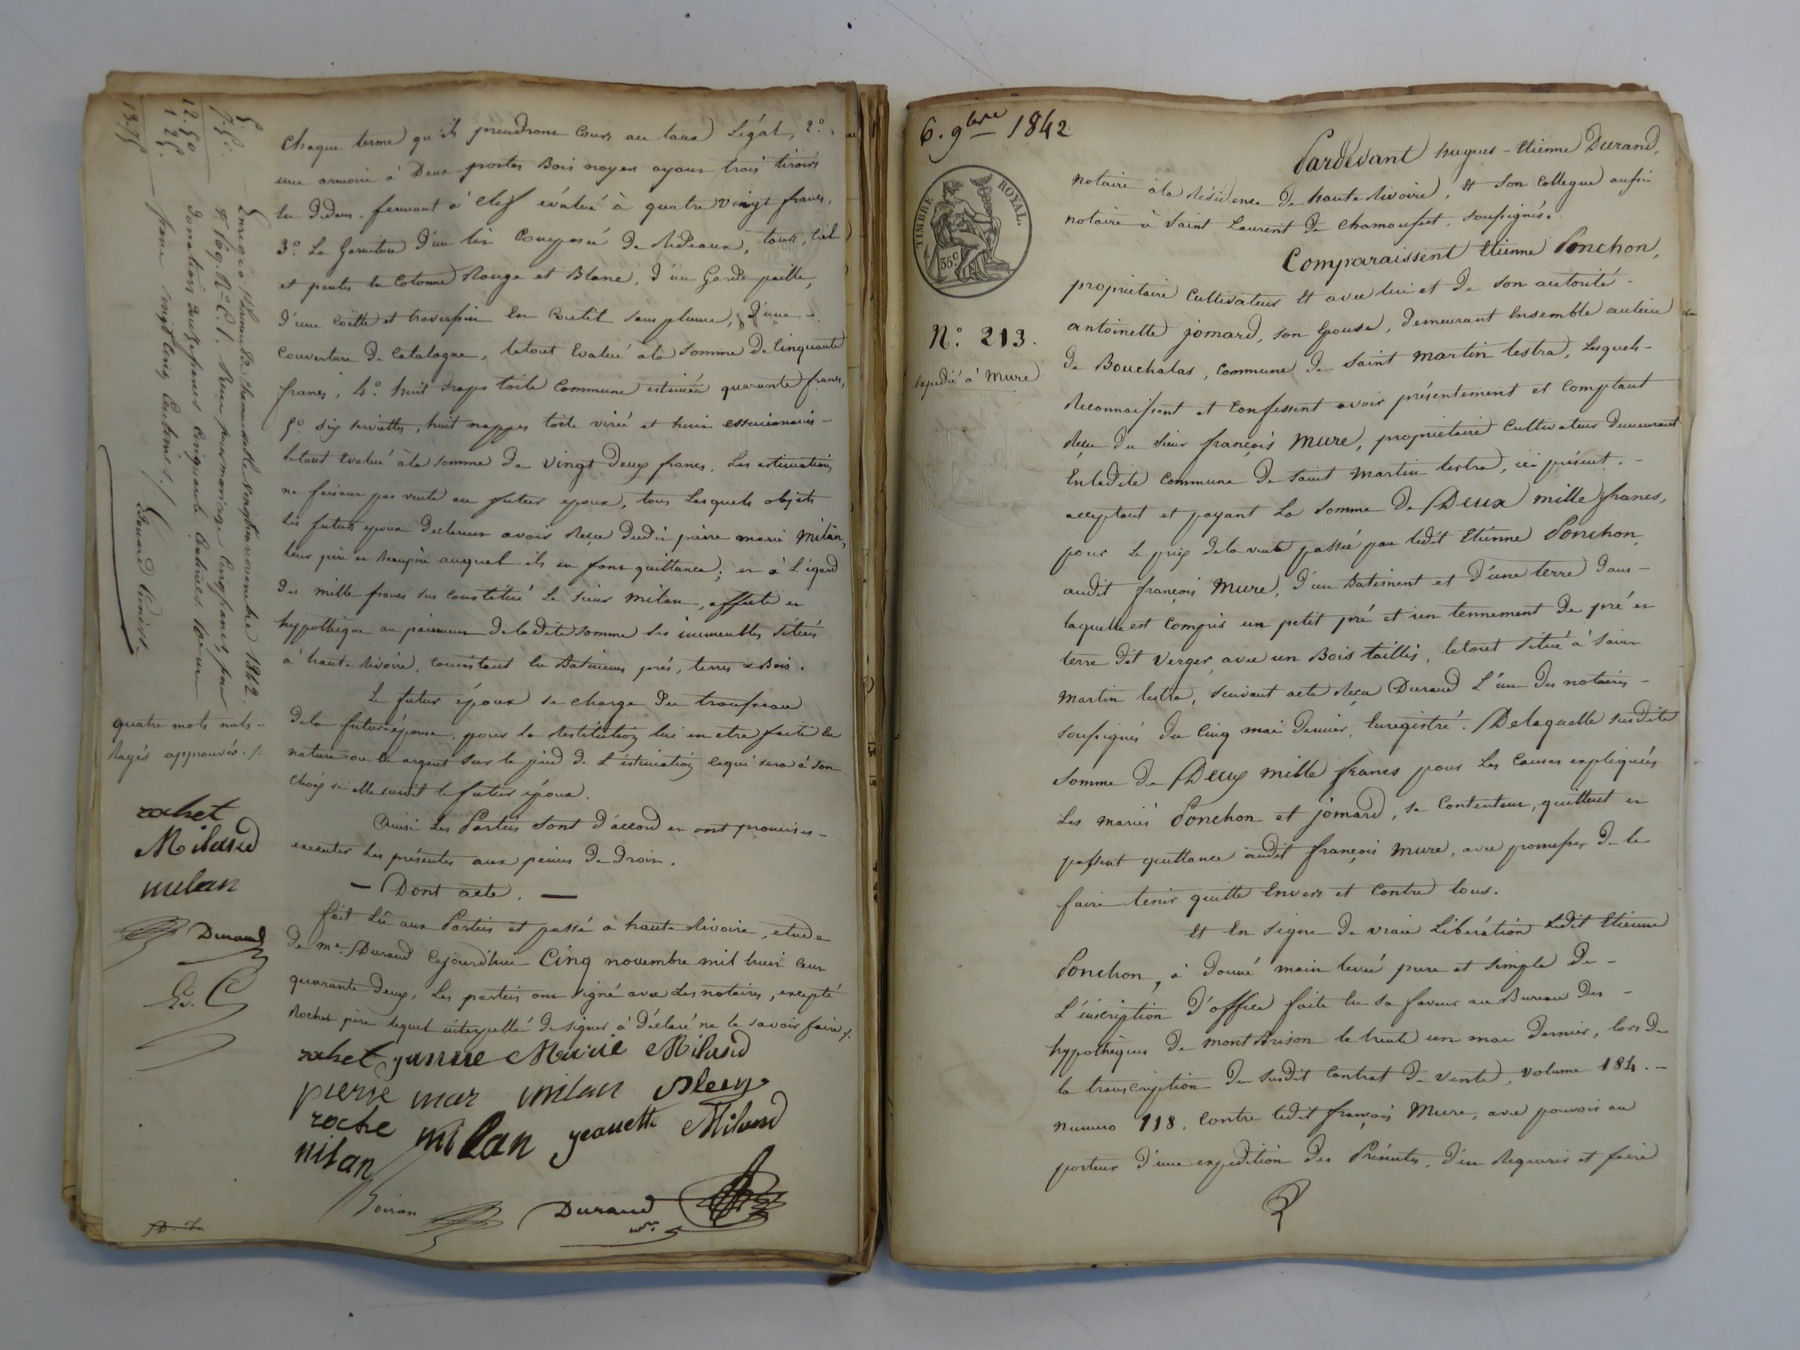 chaque terme qu'ils prendront Cours au taux Légal, 2.°
une armoire à Deux portes Bois noyer ayant trois tiroirs
en dedans, fermant à Clef évalué à quatre vingt francs,
3.° La Garniture d'un lit Composée de Rideaux, tours, Ciel
et pentes en Cotonne Rouge et Blanc, d'un Garde paille,
d'une Coitte et traversin en Coutil sans plume, d'une -
Couverture de Catalogne, le tout Evalué à la Somme de Cinquante
francs, 4.° huit draps toile Commune estimés quarante francs,
5.° dix serviettes, huit nappes toile et huit essuiemains -
le tout Evalué à la somme de vingt deux francs. Les estimations
ne faisant pas vente au futur epoux, tous Lesquels objets
Les futurs epoux Declarent avoir Reçu dudit pierre marie milan,
leur père et auquel ils en font quittance; et à L'égard
Des mille francs sus Constitué Le sieur milan, affecte et
hypothèque au paiement de la dite somme Ses immeubles situés
à haute Rivoire, Consistant en Batiments prés, terres & Bois.
Le futur époux se charge du trousseau
de la future épouse, pour la Restitution lui en etre faite en
nature ou en argent sur le pied de L'éstimation ce qui sera à son
choix si elle survit le futur époux.
Ainsi Les Parties sont d'accord et ont promis -
executer Les présentes aux peines de droit.
— Dont acte. —
fait Lû aux Parties et passé à haute Rivoire, etude
de m.e Durand Cejourdhui Cinq novembre mil huit Cent
quarante deux, Les parties ont signé avec Les notaires, excepté
Rochet père lequel interpellé de signer à déclaré ne le savoir faire ./.
rochet Marie Miland
pierre mar milan
roche milan jeanette Miland
milan
Durand
Enrégé à St Laurent de chamousset le vingt novembre 1842.
f.° 169. R.° C. 1. Reçu pour mariage Cinq francs, pour
donations Cinquante Centimes
vingt Cinq Centimes
5.
7. 50.
12. 50
1 25
13. 75
quatre mots nuls -
Rayés approuvés ./.
rochet
Miland
milan
Durand
6. 9bre 1842
TIMBRE ROYAL.
35 c.
N.° 213.
Expedié à Mure
Pardevant hugues-Etienne Durand,
notaire à la Résidence de haute Rivoire, Et Son Collegue aussi
notaire à Saint Laurent de Chamousset, soussignés.
Comparaissent Etienne Ponchon,
proprietaire Cultivateur Et avec lui et de son autorité -
antoinette jomard, son Epouse, demeurant Ensemble au lieu
de Bouchalas, Commune de Saint martin lestra, Lesquels -
Reconnaissent et Confessent avoir présentement et Comptant
Reçu du sieur françois mure, propriétaire Cultivateur demeurant
En ladite Commune de Saint martin lestra, ici présent, -
acceptant et payant La Somme de Deux mille francs,
pour Le prix de la vente passée par ledit Etienne Ponchon
audit françois mure, d'un Batiment et d'une terre dans -
laquelle est Compris un petit pré et un tennement de pré et
terre dit verger, avec un Bois taillis, le tout situé à Saint
martin lestra, suivant acte Reçu Durand L'un des notaires -
soussignés du Cinq mai dernier, Enregistré. De laquelle susdite
somme de Deux mille francs pour Les Causes expliquées
Les mariés Ponchon et jomard, se Contentent, quittent et
passent quittance audit françois mure, avec promesse de le
faire tenir quitte Envers et Contre tous.
Et En signe de vraie Libération Ledit Etienne
Ponchon, à donné main levée pure et simple de -
L'inscription d'office faite en sa faveur au Bureau des -
hypothèques de montbrison le trente un mai dernier, lors de
la transcription du susdit Contrat de vente, volume 184. -
numero 118. Contre ledit françois Mure, avec pouvoir au
porteur d'une expedition des Présentes, d'en Requerir et faire